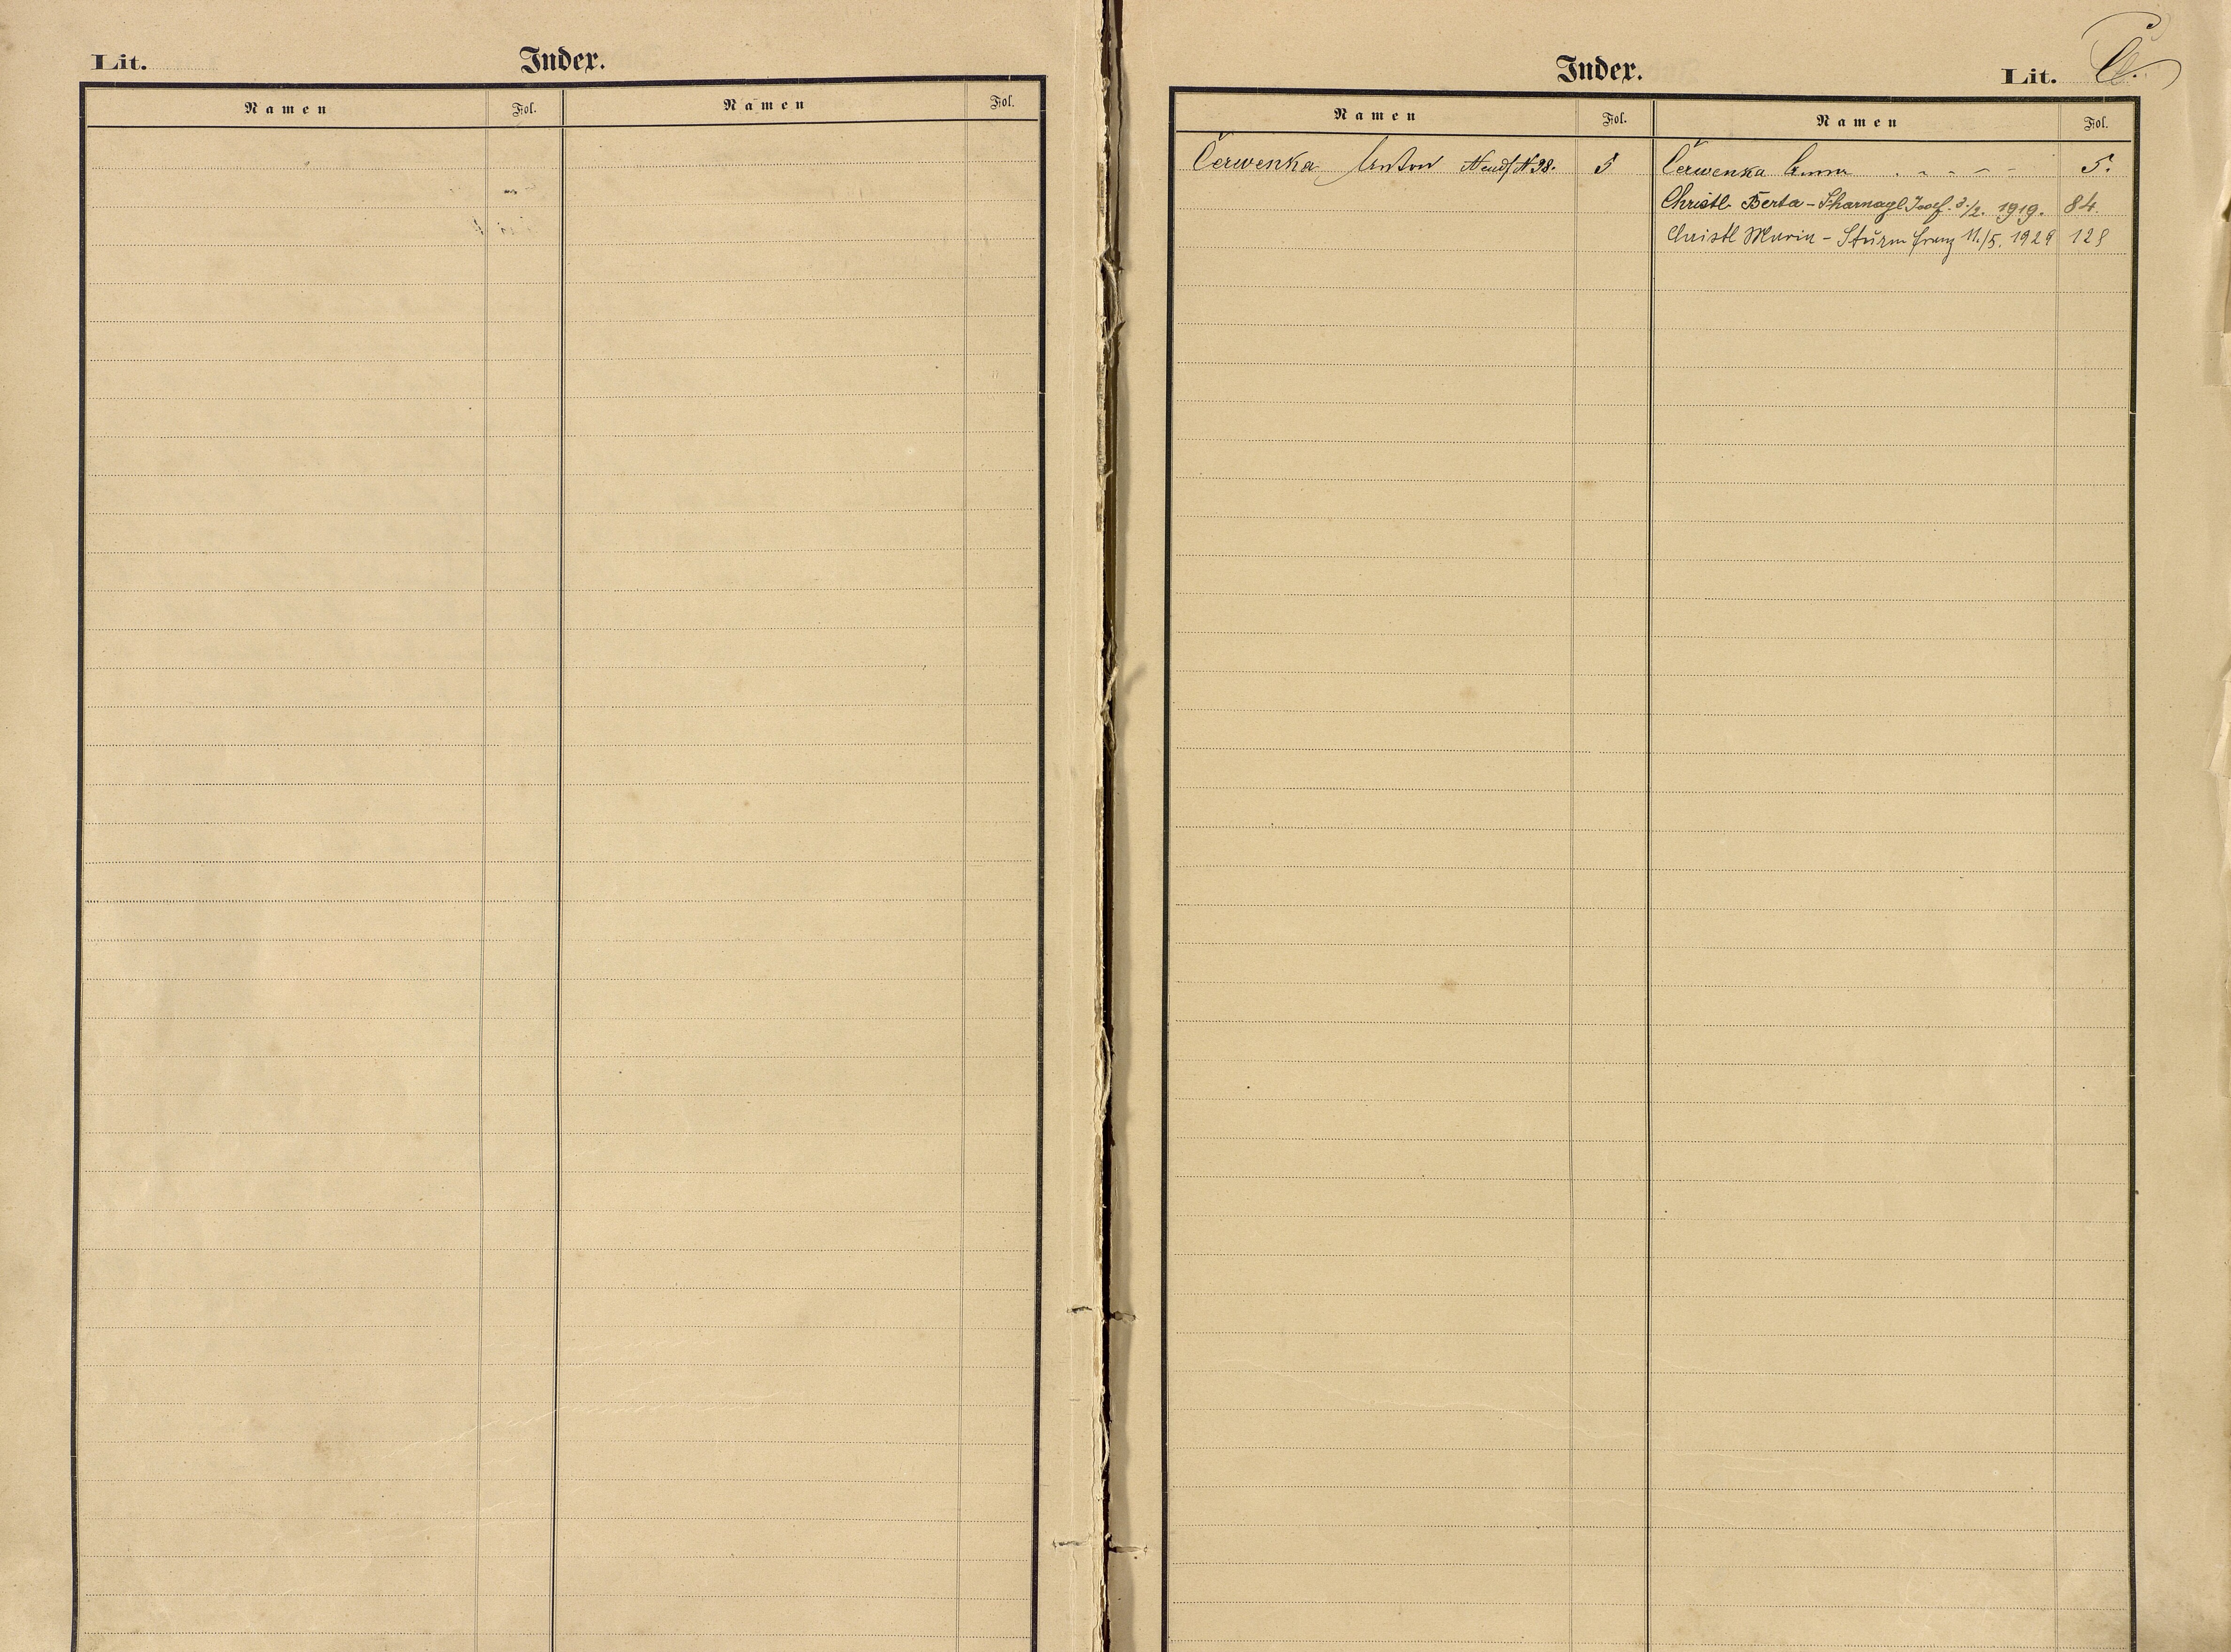 Lit.
Index.
Namen Fol. Namen Fol.
Index.
Lit. C.
Namen Fol. Namen Fol.
Červenka Anton Neudf N 98. 5 Červenka Anna . - - - - 5.
Christl Berta - Scharnagl Josef. 3./2. 1919. 84.
Christl Maria - Sturm Franz 11./5. 1929 128